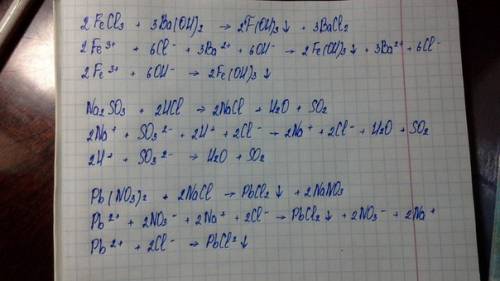 2 FeCl₃ + 3Ba(OH)₂ → 2F(OH)₃↓ + 3BaCl₂
2 Fe³⁺ + 6Cl⁻ + 3Ba²⁺ + 6OH⁻ → 2Fe(OH)₃↓ + 3Ba²⁺ + 6Cl⁻
2 Fe³⁺ + 6OH⁻ → 2Fe(OH)₃↓
Na₂SO₃ + 2HCl → 2NaCl + H₂O + SO₂
2Na⁺ + SO₃²⁻ + 2H⁺ + 2Cl⁻ → 2Na⁺ + 2Cl⁻ + H₂O + SO₂
2H⁺ + SO₃²⁻ → H₂O + SO₂
Pb(NO₃)₂ + 2NaCl → PbCl₂↓ + 2NaNO₃
Pb²⁺ + 2NO₃⁻ + 2Na⁺ + 2Cl⁻ → PbCl₂↓ + 2NO₃⁻ + 2Na⁺
Pb²⁺ + 2Cl⁻ → PbCl₂↓